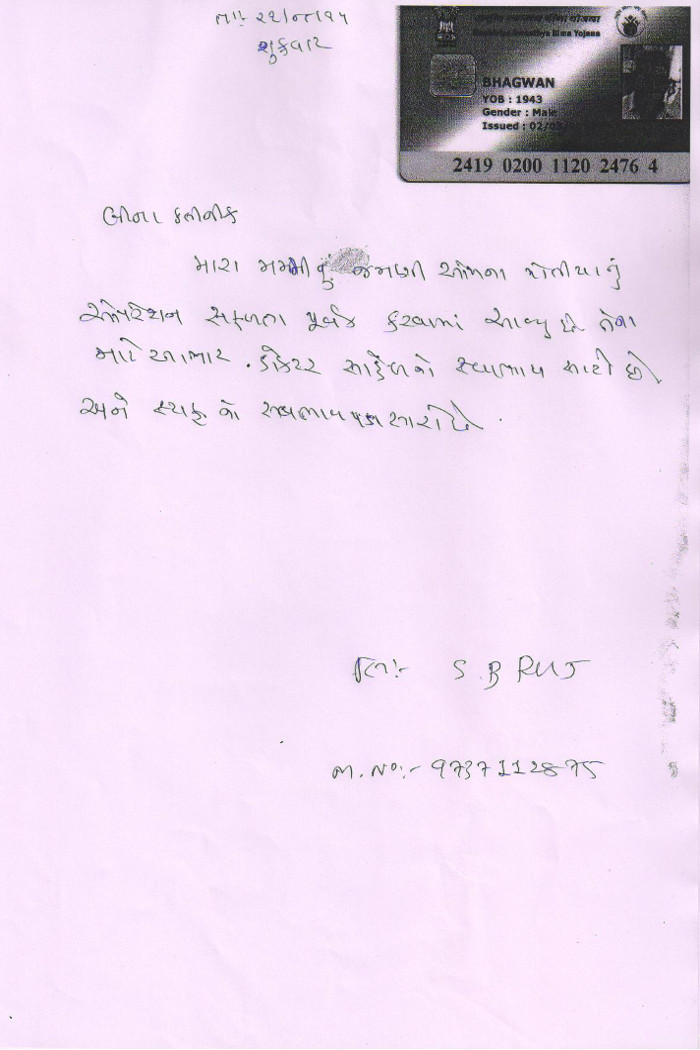 તાઃ ૨૨/૦૮/૧૫
શુક્રવાર
राष्ट्रीय स्वास्थ्य बीमा योजना
Rashtriya Swasthya Bima Yojana
BHAGWAN
YOB : 1943
Gender : Male
Issued : 02/03
2419 0200 1120 2476 4
લીના ક્લીનીક
મારા મમ્મીનું જમણી આંખના મોતીયાનું
ઓપરેશન સફળતા પૂર્વક કરવામાં આવ્યુ છે તેના
માટે આભાર . ડોક્ટર સાહેબનો સ્વભાવ સારો છે
અને સ્ટાફ નો સ્વભાવ પણ સારો છે .
લિઃ- S.B RUJ
M. No:- 9737112875